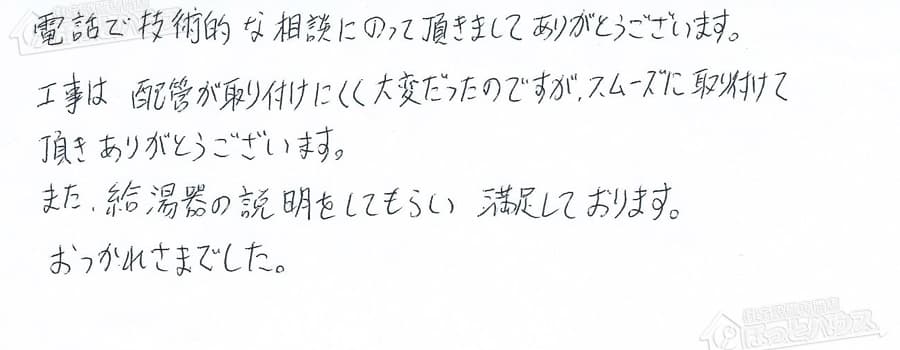 電話で技術的な相談にのって頂きましてありがとうございます。
工事は 配管が取り付けにくく大変だったのですが、スムーズに取り付けて
頂きありがとうございます。
また、給湯器の説明をしてもらい 満足しております。
おつかれさまでした。
住宅設備専門店
ふっとハウス